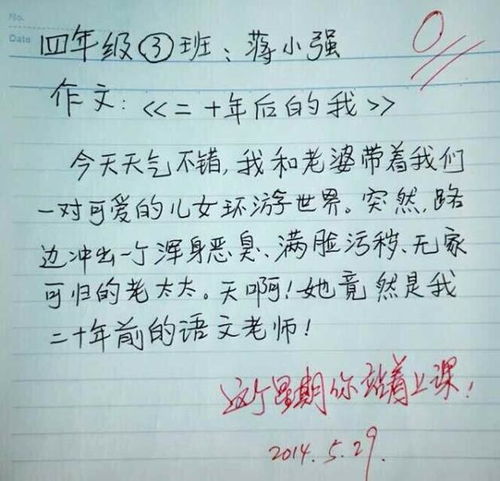 No.
Date
四年级③班：蒋小强
0
作文：《二十年后的我》
今天天气不错，我和老婆带着我们
一对可爱的儿女环游世界。突然，路
边冲出一个浑身恶臭、满脸污秽、无家
可归的老太太。天啊！她竟然是我
二十年前的语文老师！
这个星期你站着上课！
2014.5.29.